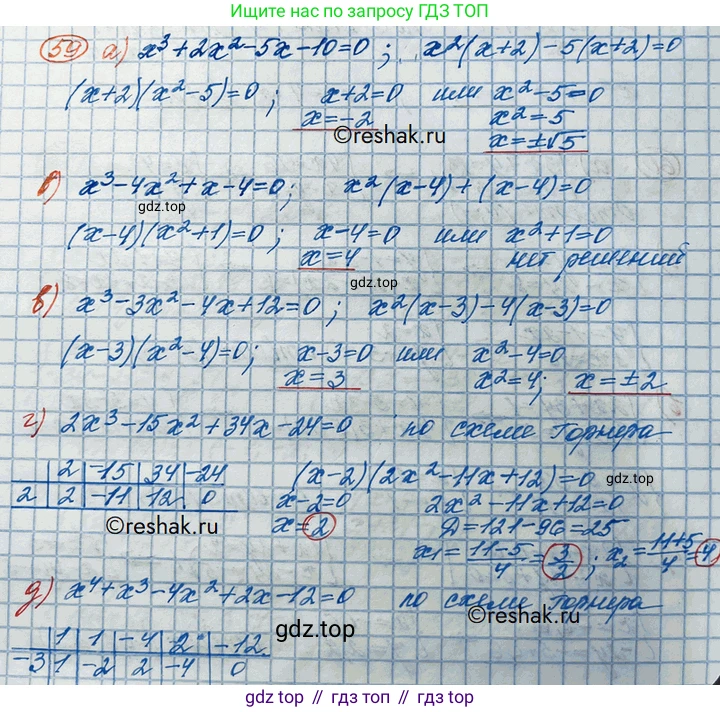 Ищите нас по запросу ГДЗ ТОП
59 а) x³+2x²-5x-10=0; x²(x+2)-5(x+2)=0
(x+2)(x²-5)=0; x+2=0 или x²-5=0
x=-2 x²=5
©reshak.ru x=±√5
б) x³-4x²+x-4=0; x²(x-4)+(x-4)=0
gdz.top
(x-4)(x²+1)=0; x-4=0 или x²+1=0
x=4 нет решений
gdz.top
в) x³-3x²-4x+12=0; x²(x-3)-4(x-3)=0
(x-3)(x²-4)=0; x-3=0 или x²-4=0
x=3 x²=4; x=±2
г) 2x³-15x²+34x-24=0 по схеме Горнера
2 -15 34 -24 (x-2)(2x²-11x+12)=0
2 2 -11 12 0 x-2=0 2x²-11x+12=0
©reshak.ru x=2 Д=121-96=25
x₁=(11-5)/4=3/2; x₂=(11+5)/4=4
©reshak.ru
д) x⁴+x³-4x²+2x-12=0 по схеме Горнера
gdz.top
1 1 -4 2 -12
-3 1 -2 2 -4 0
gdz top // гдз топ // gdz.top // гдз.топ